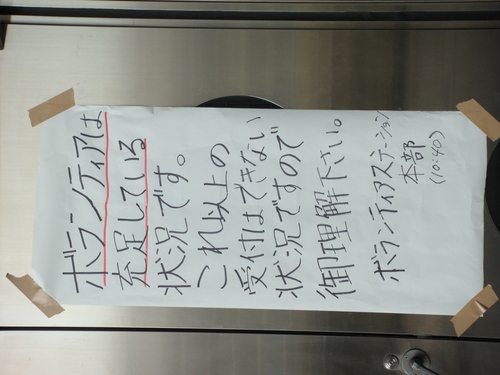 ボランティアは
充足している
状況です。
これ以上の
受付はできない
状況ですので
御理解下さい。
ボランティアステーション
本部
(10:40)